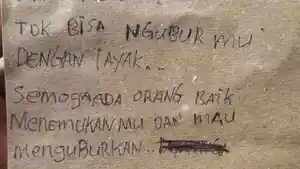 TDK BISA NGUBUR MU
DENGAN LAYAK..
SEMOGA ADA ORANG BAIK
MENEMUKANMU DAN MAU
MENGUBURKAN...